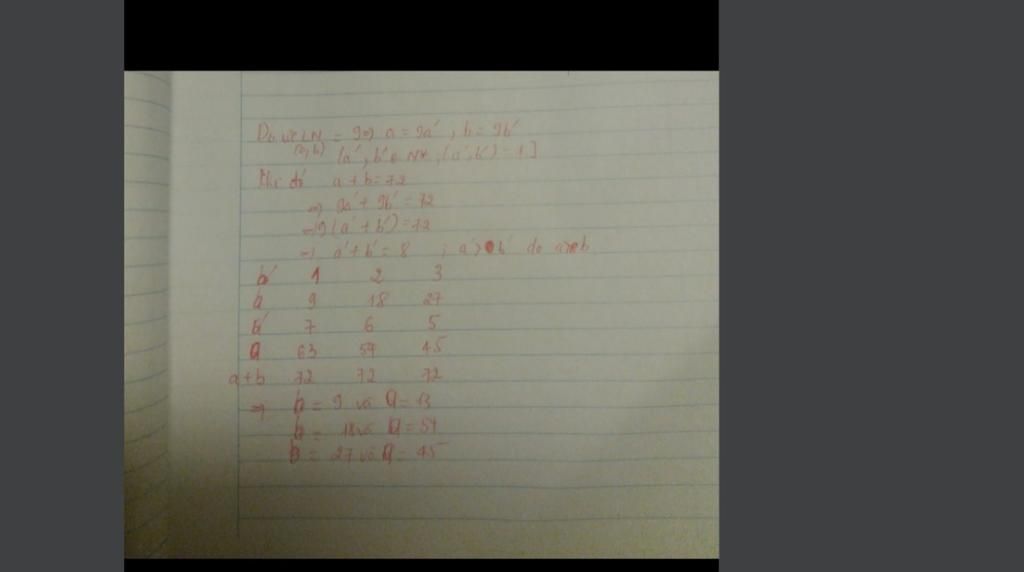 Do ƯCLN (a,b) = 9 => a = 9a', b = 9b'
(a', b' ∈ N*, (a', b') = 1]
Khi đó a + b = 72
=> 9a' + 9b' = 72
=> 9(a' + b') = 72
=> a' + b' = 8 ; a' > b' do a > b
b' 1 2 3
b 9 18 27
a' 7 6 5
a 63 54 45
a + b 72 72 72
=> b = 9 và a = 63
b = 18 và a = 54
b = 27 và a = 45